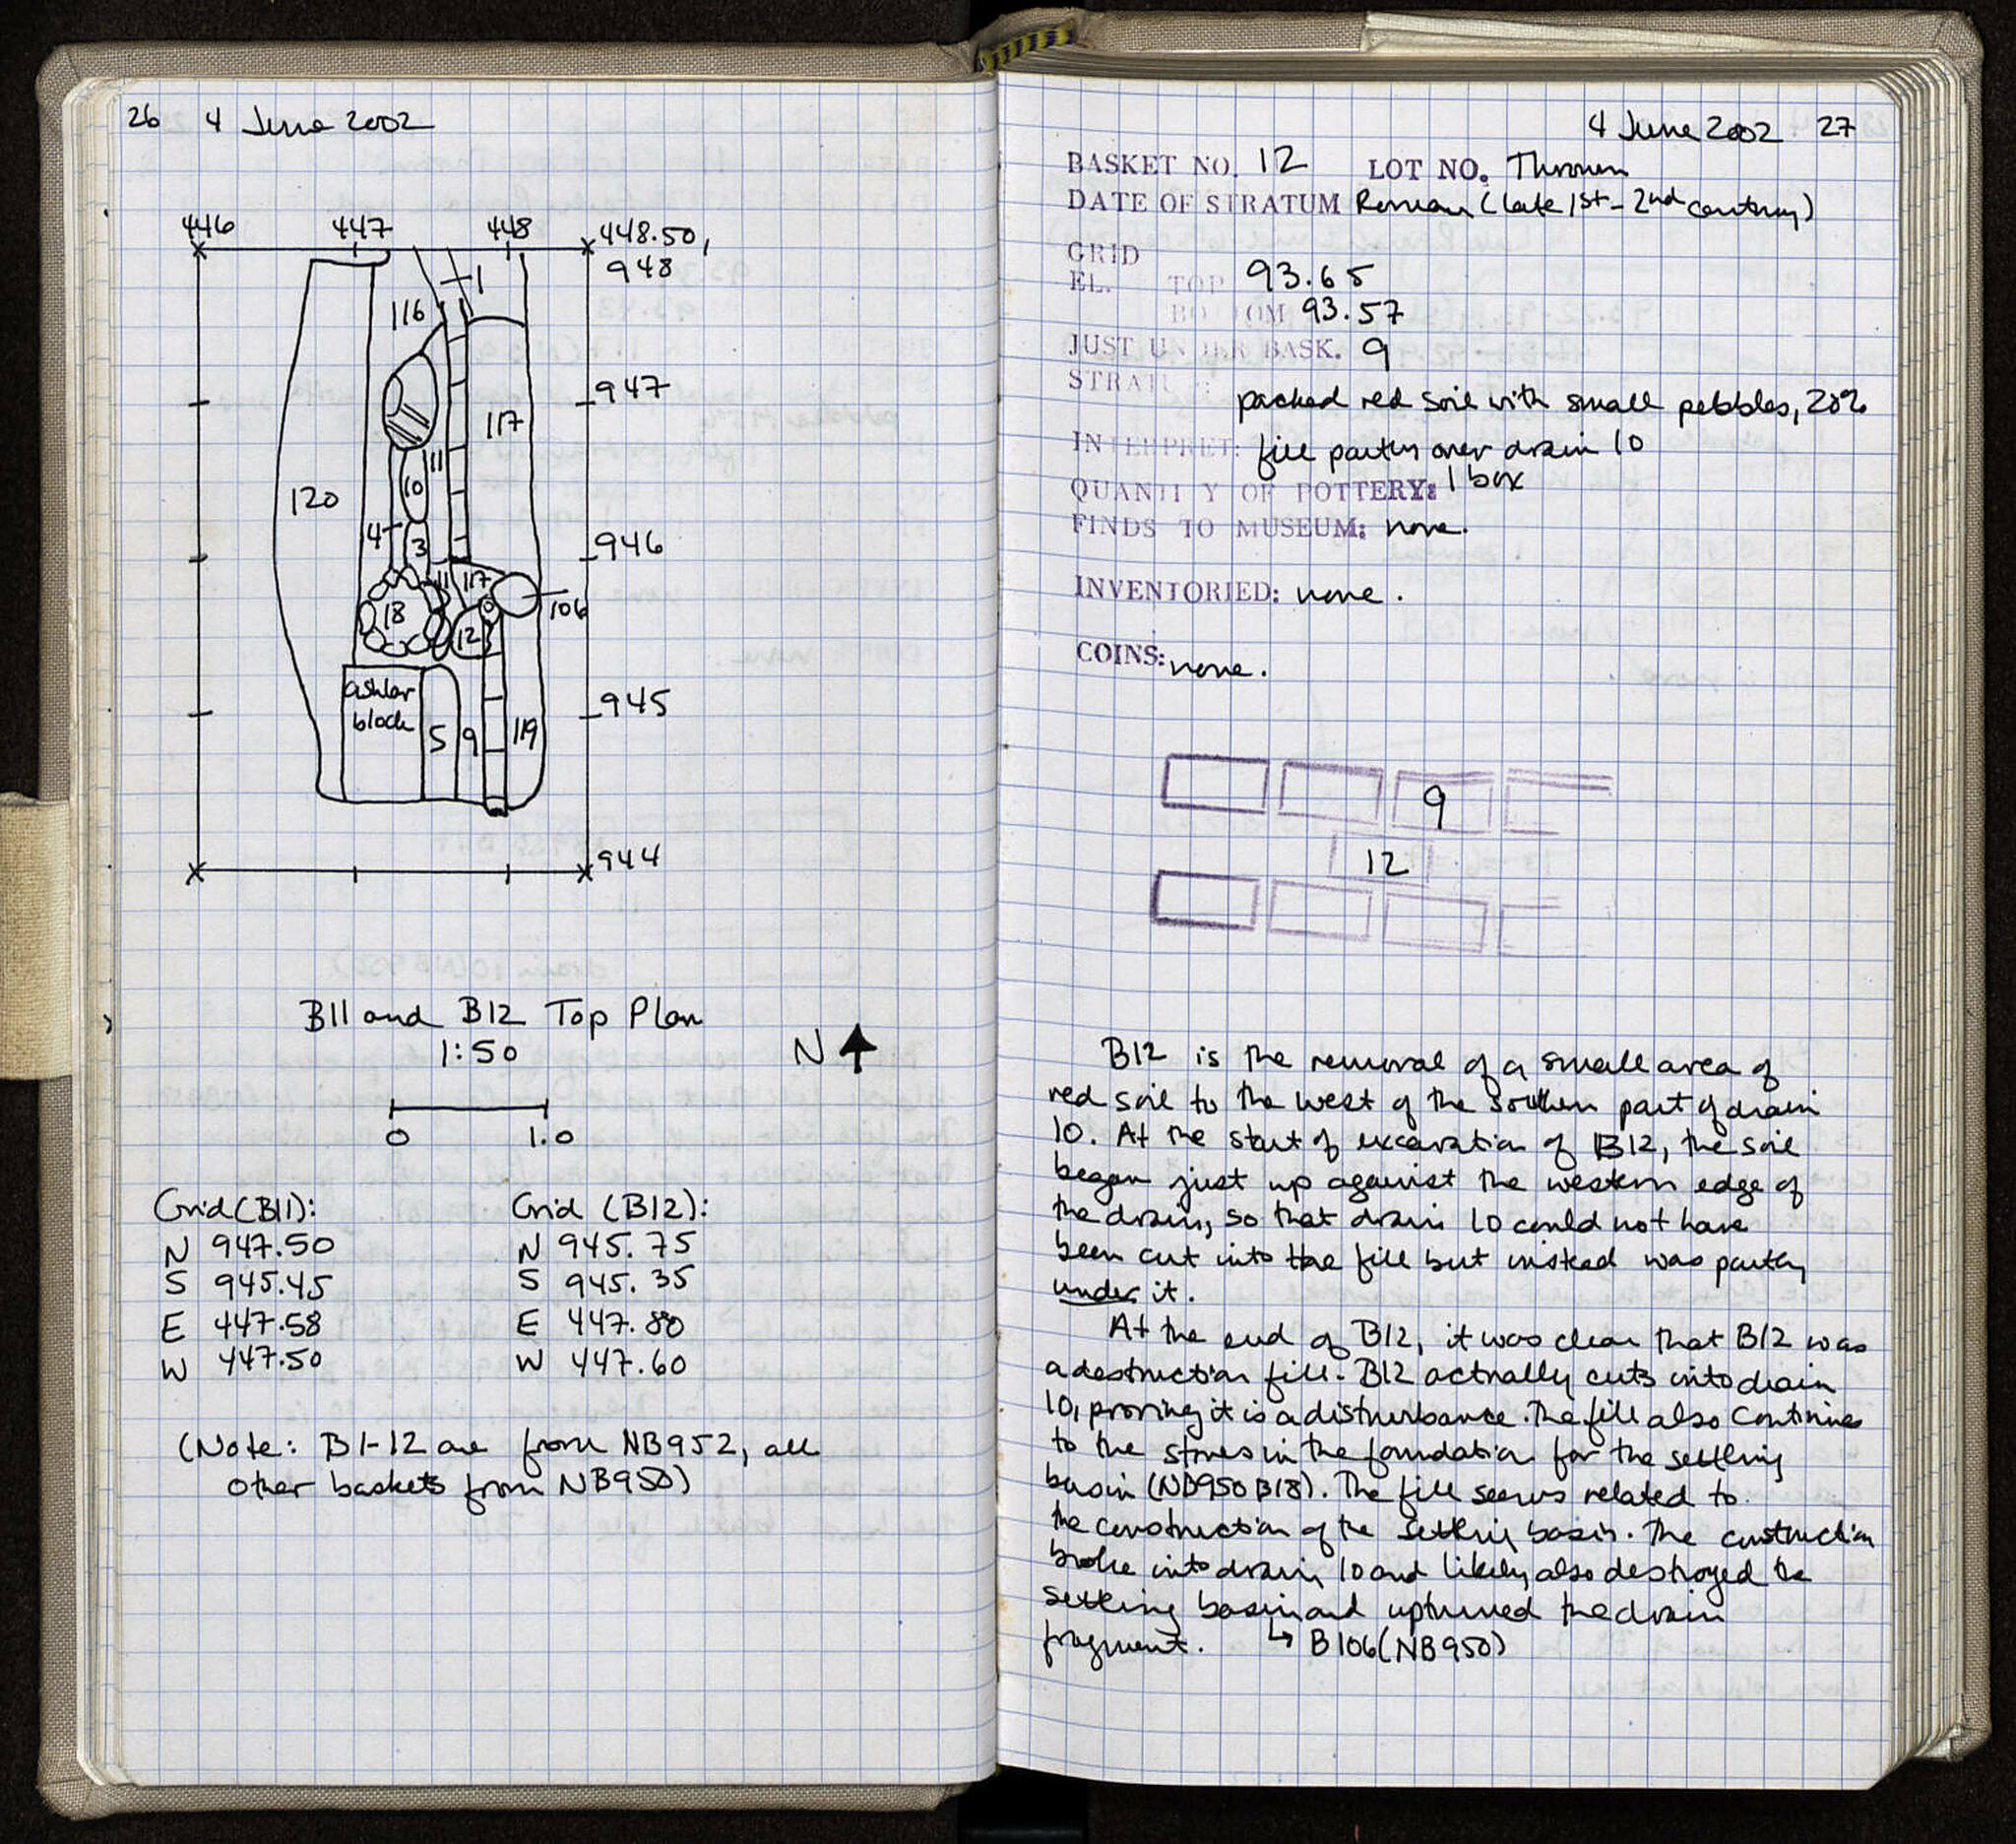 26 4 June 2002
446 447 448 448.50,
948
1
116
947
117
11
10
120
4
3
946
11 117
106
18
12
ashlar
block
945
5 9 119
944
B11 and B12 Top Plan
1:50
N
0 1.0
Grid (B11): Grid (B12):
N 947.50 N 945.75
S 945.45 S 945.35
E 447.58 E 447.80
W 447.50 W 447.60
(Note: B1-12 are from NB952, all
other baskets from NB950)
4 June 2002 27
BASKET NO. 12 LOT NO. Thrown
DATE OF STRATUM Roman (late 1st - 2nd century)
GRID
EL. TOP 93.65
BOTTOM 93.57
JUST UNDER BASK. 9
STRAT packed red soil with small pebbles, 20%
INTERPRET: fill partly over drain 10
QUANTITY OF POTTERY: 1 box
FINDS TO MUSEUM: none.
INVENTORIED: none.
COINS: none.
9
12
B12 is the removal of a small area of
red soil to the west of the southern part of drain
10. At the start of excavation of B12, the soil
began just up against the western edge of
the drain, so that drain 10 could not have
been cut into the fill but instead was partly
under it.
At the end of B12, it was clear that B12 was
a destruction fill. B12 actually cuts into drain
10, proving it is a disturbance. The fill also continues
to the stones in the foundation for the settling
basin (NB950 B18). The fill seems related to
the construction of the settling basin. The construction
broke into drain 10 and likely also destroyed the
settling basin and upturned the drain
fragment. ↳ B106 (NB950)